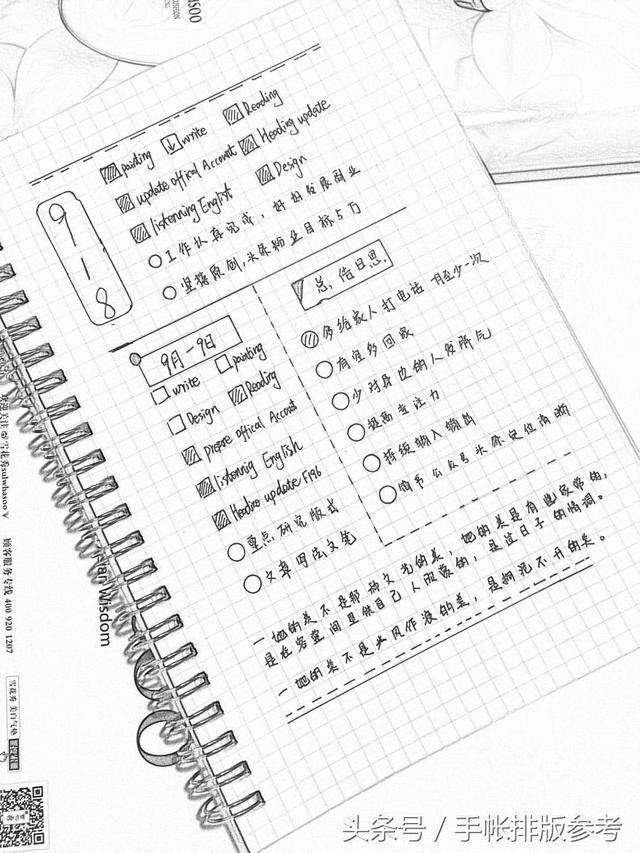 Reading
write
painting
Heading update
update offical Account
Design
listenning Englist
工作认真完成，好好发展副业
坚持原创，头条粉业目标5万
9-8
9月-9日
painting
write
Reading
Design
prepare offical Account
listening English
Headize update F196
重点研究版式
文章写法文笔
总.结日思.
多给家人打电话 一月至少一次
有空多回家
少对身边的人发脾气
提高专注力
持续输入输出
简书公众号头条定位清晰
一她的美不是那种文艺的美，她的美是有些寂寞的，
是在密室间里供自己人观赏的，是过日子的情调。
一她的美不是大风作浪的美，是拘泥不开的美。
顾客服务专线 400 920 1207
Wisdom
头条号 / 手帐排版参考